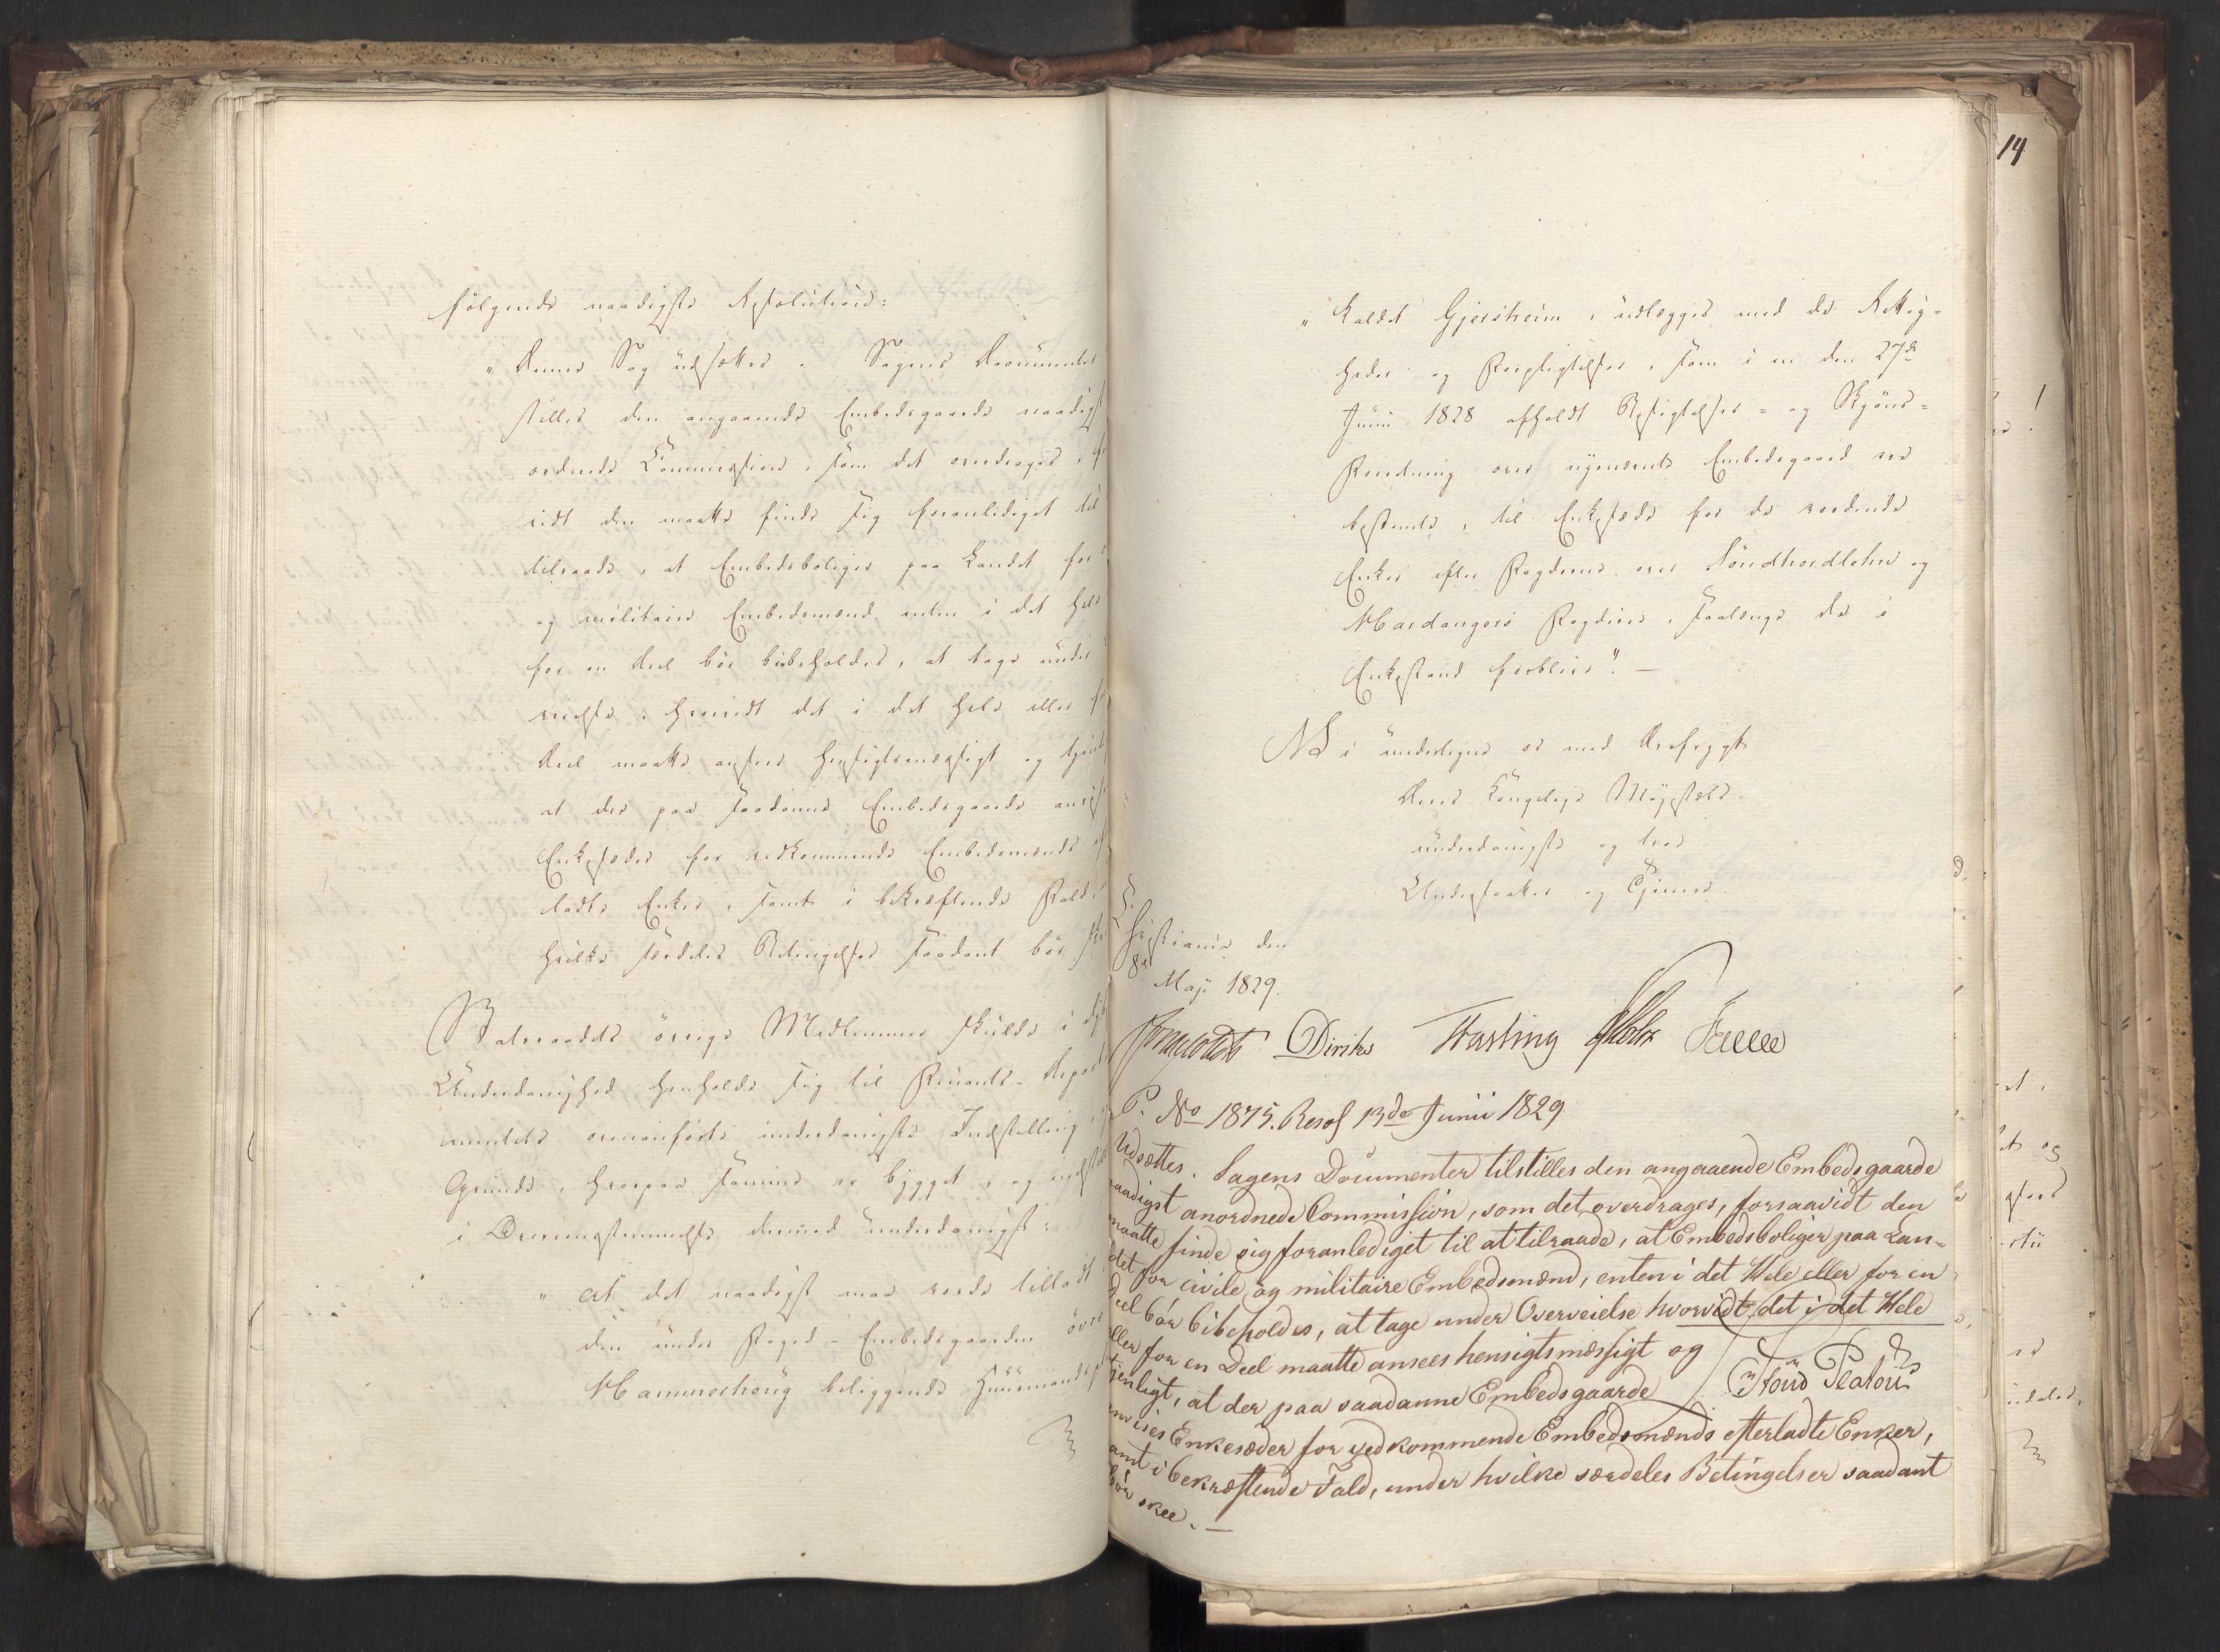 følgende naadigste Resolution:
" Denne Sag udsættes. Sagens Documenter
stilles den angaaende Embedsgaarde naadigst
ordnede Commission, som det overdrages, for
vidt den maatte finde sig foranlediget til
tilraade, at Embedsboliger paa Landet for
og militaire Embedsmænd enten i det Hele
for en Deel bør bibeholdes, at tage under
veielse, hvorvidt det i det Hele eller for
Deel maatte ansees hensigtsmæssigt og tjenl
at der paa saadanne Embedsgaarde anvis
Enkesæder for vedkommende Embedsmænds ef
ladte Enker, samt i bekræftende Fald,
hvilke særdeles Betingelser saadant bør skee
Statsraadets øvrige Medlemmer skulde i dyb
Underdanighed henholde sig til Finants-Depart
mentets ovenanførte underdanigste Indstilling
Grunde, hvorpaa samme er bygget, og indstille
i Overeensstemmelse dermed underdanigst:
" at det naadigst maa vorde tilladt
den under Foged-Embedsgaarden øvre
Hammerhoug beliggende Huusmandspl
" kaldet Gjersheim, udlægges med de Rettig-
heder og Forpligtelser, som i en den 27de
Junii 1828 afholdt Besigtelses- og Skjøns-
Forretning over nysnævnte Embedsgaard ere
bestemte, til Enkesæde for de vordende
Enker efter Fogderne over Søndhordlehn og
Hardangers Fogderie, saalænge de i
Enkestand forblive". —
Vi undertegne os med Ærefrygt
Deres Kongelige Majestæts
underdanigste og troe
Undersaatter og Tjenere.
Christiania den
8de Maji 1829.
Diriks Fasting
P. No 1875. Resol 13de Junii 1829
Udsættes. Sagens Documenter tilstilles den angaaende Embedsgaarde
naadigst anordnede Commission, som det overdrages, forsaavidt den
maatte finde sig foranlediget til at tilraade, at Embedsboliger paa Lan-
det for civile og militaire Embedsmænd, enten i det Hele eller for en
Deel bør bibeholdes, at tage under Overveielse hvorvidt det i det Hele
eller for en Deel maatte ansees hensigtsmæssigt og
tjenligt, at der paa saadanne Embedsgaarde Stoud Platou
anvises Enkesæder for vedkommende Embedsmænds efterladte Enker,
samt i bekræftende Fald, under hvilke særdeles Betingelser saadant
bør skee. —
14